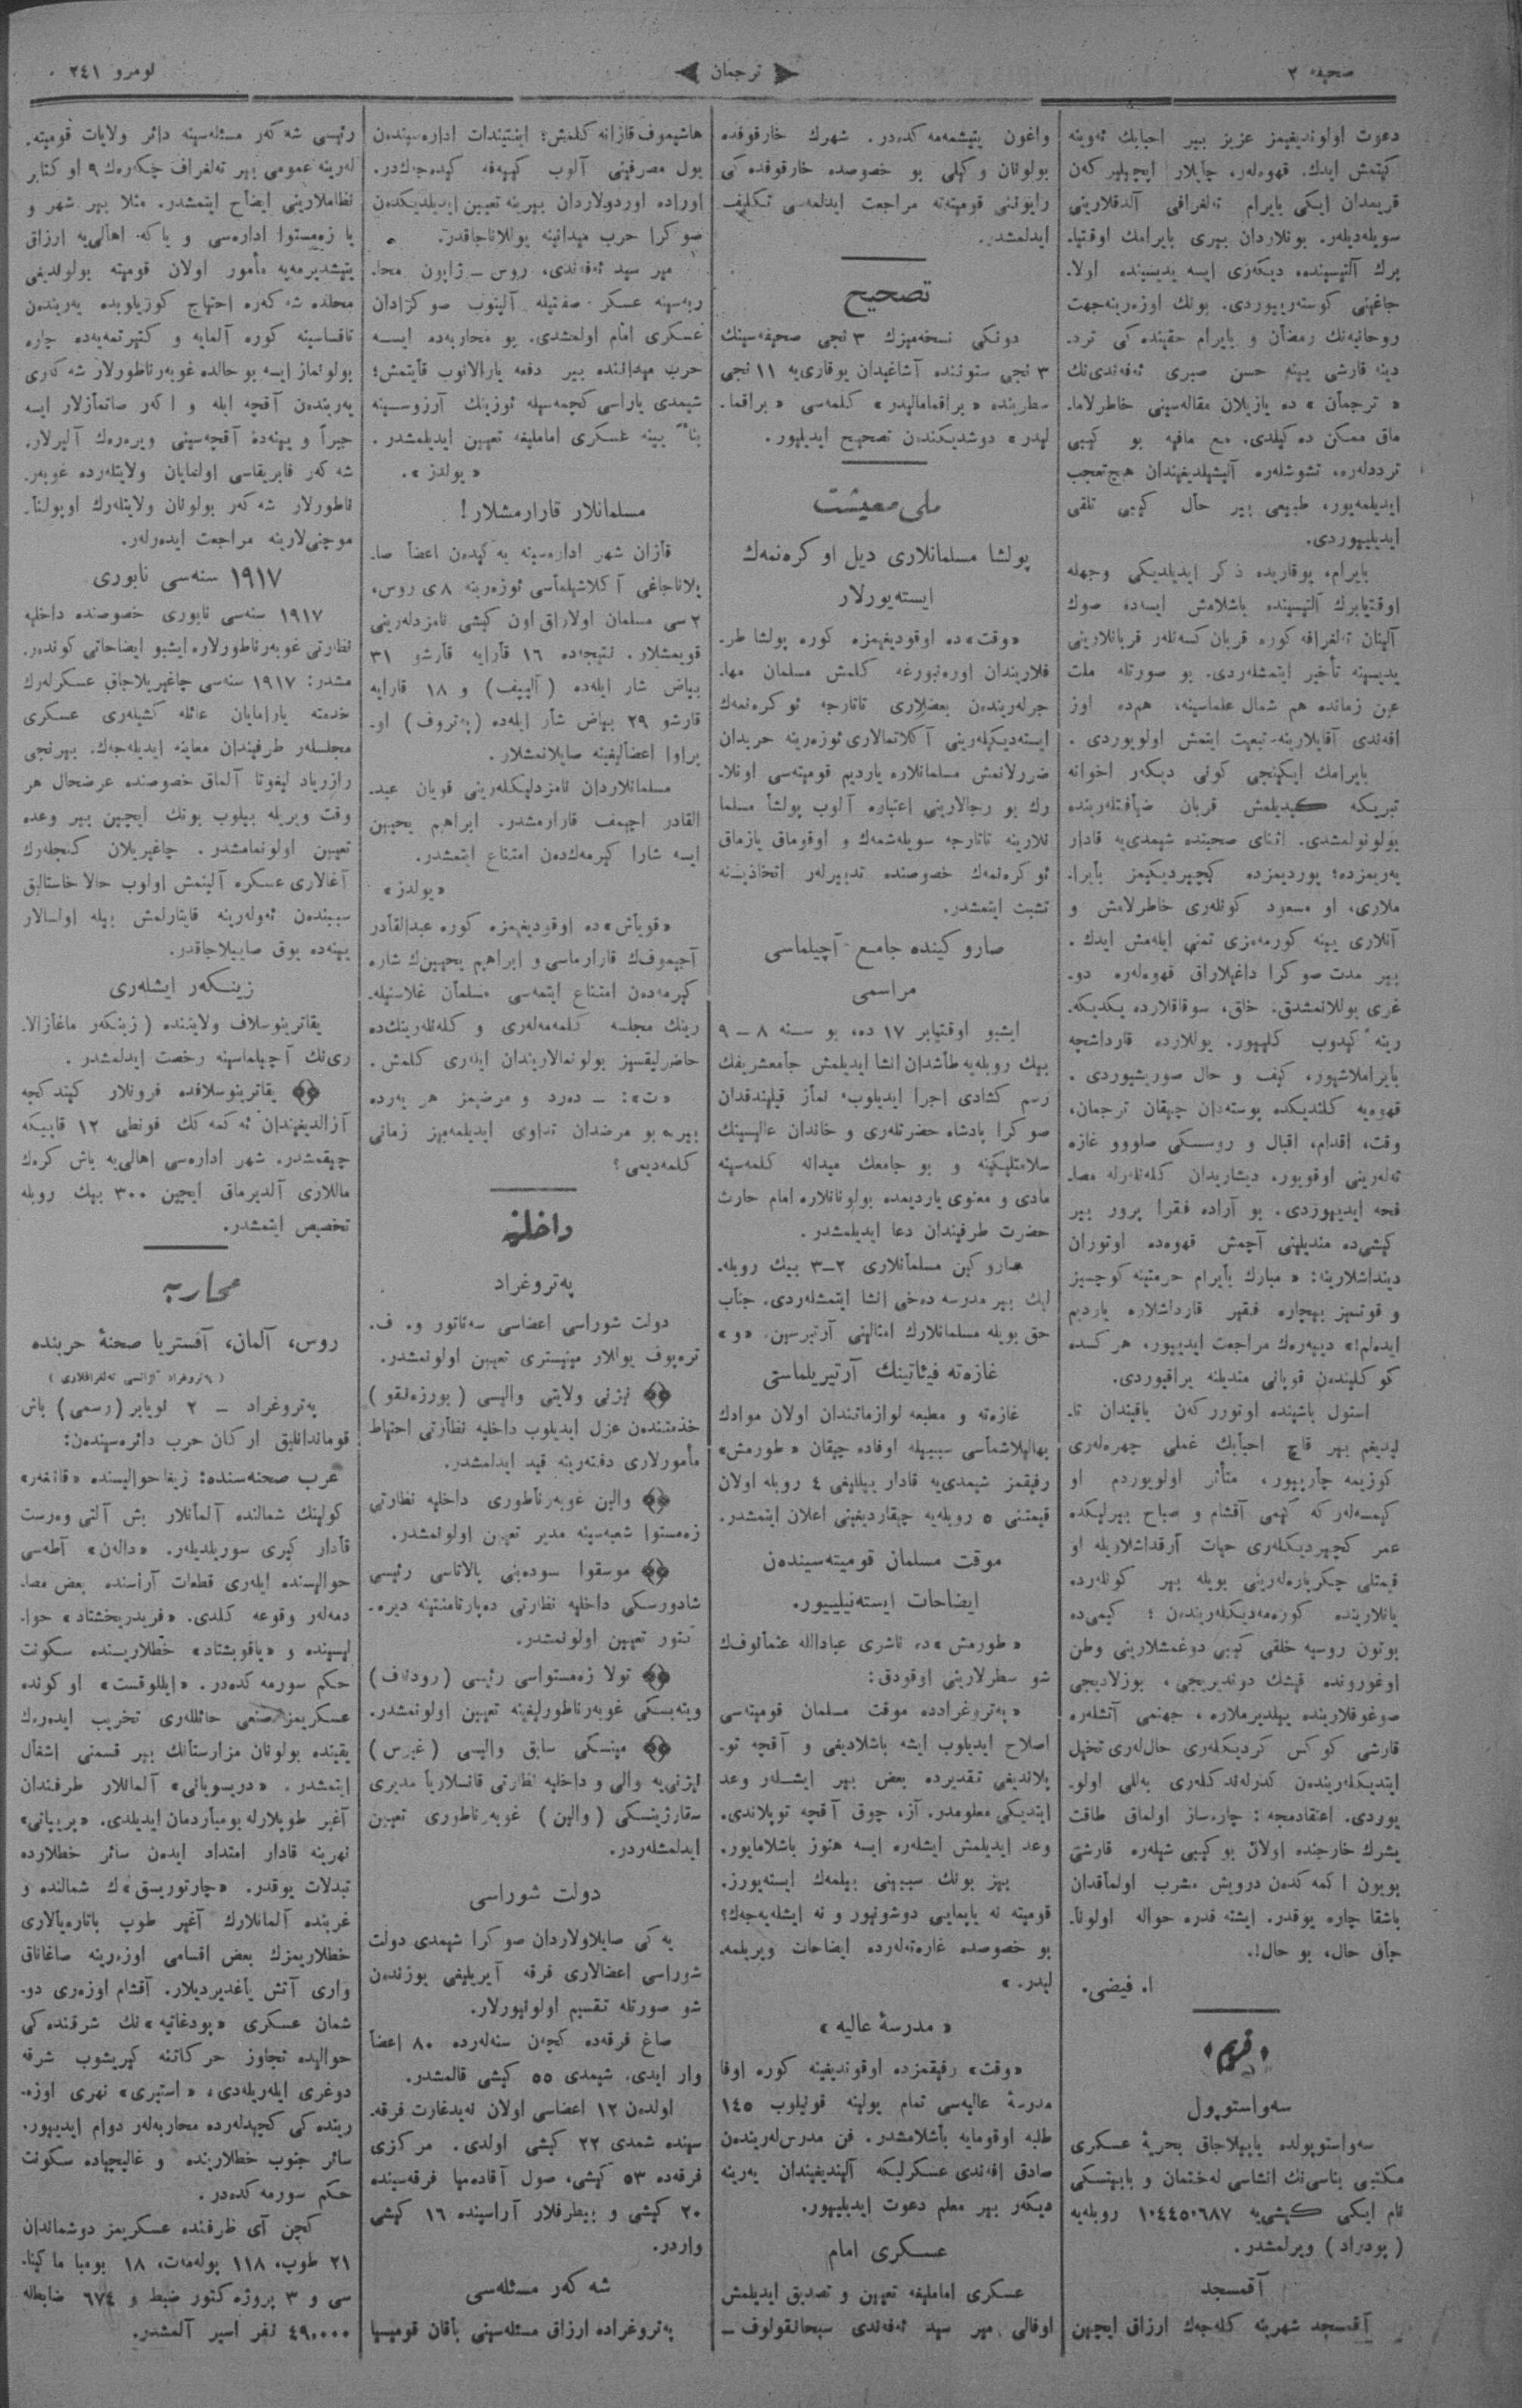 صحیفه ٢
ترجمان
نومرو ٢٤١
دعوت اولوندیغیمز عزیز بیر احبابك ئه‌وینه
كیتمش ایدك. قهوه‌لر، چایلار ایچیلیر كه‌ن
قریمدان ایكی بایرام ته‌لغرافی آلدقلارینی
سویله‌دیله‌ر. بونلاردان بیری بایرامك اوقتیا-
برك آلتیسینده، دیكه‌ری ایسه یدیسینده اولا-
جاغینی كوسته‌ریوردی. بونك اوزه‌رینه‌جهت
روحانیه‌نك رمضان و بایرام حقینده‌كی ترد-
دینه قارشی یینه حسن صبری ئه‌فه‌ندی‌نك
« ترجمان » ده یازیلان مقاله‌سینی خاطرلاما-
ماق ممكن ده كیلدی. مع مافیه بو كیبی
ترددله‌ره، تشوشله‌ره آلیشیلدیغیندان هیچ تعجب
ایدیلمه‌یور، طبیعی بیر حال كیبی تلقی
ایدیلییوردی.
بایرام، یوقاریده ذكر ایدیلدیكی وجهله
اوقتیابرك آلتیسینده باشلامش ایسه‌ده صوك
آلینان ته‌لغرافه كوره قربان كسه‌نله‌ر قربانلارینی
یدیسینه تأخیر ایتمشله‌ردی. بو صورتله ملت
عین زمانده هم شمال علماسینه، هم‌ده اوز
افه‌ندی آقایلارینه تبعیت ایتمش اولویوردی .
بایرامك ایكینجی كونی دیكه‌ر اخوانه
تبریكه كیدیلمش قربان ضیافتله‌رینده
بولونولمشدی. اثنای صحبتده شیمدی‌یه قادار
یه‌ریمزده؛ یوردیمزده كچیردیكیمز بایرا-
ملاری، او مسعود كونله‌ری خاطرلامش و
آنلاری یینه كورمه‌مزی تمنی ایله‌مش ایدك .
بیر مدت صوكرا داغیلاراق قهوه‌له‌ره دو-
غری یوللانمشدق. خلق، سوقاقلارده یكدیكه-
رینه كیدوب كلییور. یوللارده قارداشجه
بایراملاشیور، كیف و حال صوریشیوردی .
قهوه‌یه كلندیكده پوسته‌دان چیقان ترجمان،
وقت، اقدام، اقبال و روسسكی صلووو غازه
ته‌له‌رینی اوقویور، دیشاریدان كله‌نله‌رله مصا-
فحه ایدییوردی. بو آراده فقرا پرور بیر
كیشی‌ده مندیلینی آچمش قهوه‌ده اوتوران
دینداشلارینه: « مبارك بایرام حرمتینه كوچسیز
و قوتسیز بیچاره فقیر قارداشلاره یاردیم
ایده‌لم!» دییه‌رك مراجعت ایدییور، هر كسده
كوكلیندن قوپانی مندیلنه براقیوردی.
استول باشینده اوتورركه‌ن یاقیندان تا-
نیدیغم بیر قاچ احبابك غملی چهره‌له‌ری
كوزیمه چارپیور، متأثر اولویوردم او
كیمسه‌له‌ر كه كیمی آقشام و صباح بیرلیكده
عمر كچیردیكله‌ری حیات آرقداشلاریله او
قیمتلی جكرپاره‌له‌رینی بویله بیر كونله‌رده
یانلارینده كوره‌مه‌دیكله‌ریندن ؛ كیمی‌ده
بوتون روسیه خلقی كیبی دوغمشلارینی وطن
اوغورونده قیشك دوندیریجی، بوزلاديجی
صوغوقلارینده ییلدیرملاره، جهنمی آتشله‌ره
قارشی كوكس كردیكله‌ری حال‌له‌ری تخیل
ایتدیكله‌ریندن كدرله‌ندكله‌ری به‌للی اولو-
یوردی. اعتقادمجه : چاره‌ساز اولماق طاقت
بشرك خارجنده اولان بو كیبی شیله‌ره قارشی
بویون اكمه كدن درویش مشرب اولماقدان
باشقا چاره یوقدر. ایشته قدره حواله اولونا-
جاق حال، بو حال!.
ا. فیضی.
﴿ قریم ﴾
سه‌واستوپول
سه‌واستوپولده یاپیلاجاق بحریهٔ عسكری
مكتبی بناسی‌نك انشاسی له‌ختمان و بابیتسكی
نام ایكی كیشی‌یه ١٠٤٤٥٠٦٨٧ روبله‌یه
( پودراد ) ویرلمشدر.
آقمسجد
آقمسجد شهرینه كله‌جه‌ك ارزاق ایچین
واغون یتیشمه‌مه كده‌در. شهرك خارقوفده
بولونان وكیلی بو خصوصده خارقوفده كی
رایوننی قومیته‌ته مراجعت ایدلمه‌سی تكلیف
ایدلمشدر.
تصحیح
دونكی نسخه‌میزك ٣ نجی صحیفه‌سینك
٣ نجی ستوننده آشاغیدان یوقاری‌یه ١١ نجی
سطرینده « براقمامالیدر» كلمه‌سی « براقما-
لیدر» دوشدیكندن تصحیح ایدیلیور.
ملی معیشت
پولشا مسلمانلاری دیل او كره‌نمه‌ك
ایسته‌یورلار
«وقت»ده اوقودیغیمزه كوره پولشا طر-
فلاریندان اوره‌نبورغه كلمش مسلمان مها-
جرله‌ریندن بعضلاری تاتارجه ئوكره‌نمه‌ك
ایسته‌دیكله‌رینی آكلاتمالاری ئوزه‌رینه حربدان
ضررلانمش مسلمانلاره یاردیم قومیته‌سی اونلا-
رك بو رجالارینی اعتباره آلوب پولشا مسلما
نلارینه تاتارجه سویله‌شمه‌ك و اوقوماق یازماق
ئوكره‌نمه‌ك خصوصنده تدبیرله‌ر اتخاذینه
تشبث ایتمشدر.
صارو كینده جامع آچیلماسی
مراسمی
ایشبو اوقتیابر ١٧ ده، بو سنه ٨ – ٩
بیك روبله‌یه طاشدان انشا ایدیلمش جامعشریفك
رسم كشادی اجرا ایدیلوب، نماز قیلیندقدان
صوكرا پادشاه حضرتله‌ری و خاندان عالیسینك
سلامتلیكینه و بو جامعك میدانه كلمه‌سینه
مادی و معنوی یاردیمده بولونانلاره امام حارث
حضرت طرفیندان دعا ایدیلمشدر.
صارو كین مسلمانلاری ٢–٣ بیك روبله-
لیك بیر مدرسه ده‌خی انشا ایتمشله‌ردی. جناب
حق بویله مسلمانلارك امثالینی آرتیرسین. «و»
غازه‌ته فیئاتینك آرتیریلماسی
غازه‌ته و مطبعه لوازماتندان اولان موادك
بهالیلاشماسی سببیله اوفاده چیقان « طورمش»
رفیقمز شیمدی‌یه قادار ییللیغی ٤ روبله اولان
قیمتنی ٥ روبله‌یه چیقاردیغینی اعلان ایتمشدر.
موقت مسلمان قومیته‌سیندن
ایضاحات ایسته‌نیلییور.
« طورمش »ده ناشری عبادالله عثمانوفك
شو سطرلارینی اوقودق:
« په‌تروغرادده موقت مسلمان قومیته‌سی
اصلاح ایدیلوب ایشه باشلادیغی و آقچه تو-
پلاندیغی تقدیرده بعض بیر ایشله‌ر وعد
ایتدیكی معلومدر. آز، چوق آقچه توپلاندی.
وعد ایدیلمش ایشله‌ره ایسه هنوز باشلامایور.
بیز بونك سببینی بیلمه‌ك ایسته‌یورز.
قومیته نه یاپمایی دوشونیور و نه ایشله‌یه‌جه‌ك؟
بو خصوصده غازه‌ته‌له‌رده ایضاحات ویریلمه-
لیدر. »
« مدرسهٔ عالیه »
«وقت» رفیقمزده اوقوندیغینه كوره اوفا
مدرسهٔ عالیه‌سی تمام یولینه قونیلوب ١٤٥
طلبه اوقومایه باشلامشدر. فن مدرس‌له‌ریندن
صادق افه‌ندی عسكرلیكه آلیندیغیندان یه‌رینه
دیكه‌ر بیر معلم دعوت ایدیلییور.
عسكری امام
عسكری اماملیغه تعیین و تصدیق ایدیلمش
اوفالی میر سید ئه‌فه‌ندی سبحانقولوف –
هاشیموف قازانه كلمش؛ اینتیندات اداره‌سیندن
یول مصرفینی آلوب كییه‌فه كیده‌جه‌ك‌در.
اوراده اوردولاردان بیرینه تعیین ایدیلدیكدن
صوكرا حرب میدانینه یوللاناجاقدر.
میر سید ئه‌فه‌ندی، روس – ژاپون محا-
ربه‌سینه عسكر صفتیله آلینوب صوكرادان
عسكری امام اولمشدی. بو محاربه‌ده ایسه
حرب میداننده بیر دفعه یارالانوب قایتمش؛
شیمدی یاراسی كچمه‌سیله ئوزینك آرزوسینه
بناءً یینه عسكری اماملیغه تعیین ایدیلمشدر.
« یولدز ».
مسلمانلار قارارمشلار!
قازان شهر اداره‌سینه یه‌كیدن اعضا صا-
یلاناجاغی آكلاشیلماسی ئوزه‌رینه ٨ ی روس،
٢ سی مسلمان اولاراق اون كیشی نامزدله‌رینی
قویمشلار. نتیجه‌ده ١٦ قارایه قارشو ٣١
بیاض شار ایله‌ده ( آلییف) و ١٨ قارایه
قارشو ٢٩ بیاض شار ایله‌ده (په‌تروف) او-
پراوا اعضالیغینه صایلانمشلار.
مسلمانلاردان نامزدلیكله‌رینی قویان عبد-
القادر اچیمف قارارمشدر. ابراهیم یحیین
ایسه شارا كیرمه‌ك‌دن امتناع ایتمشدر.
«یولدز»
«قویاش»ده اوقودیغیمزه كوره عبدالقادر
آچیموف‌ك قارارماسی و ابراهیم یحیین‌ك شاره
كیرمه‌دن امتناع ایتمه‌سی مسلمان غلاسنیله-
رینك مجلسه كلمه‌مه‌له‌ری و كله‌نله‌رینك‌ده
حاضرلیقسیز بولونمالاریندان ایله‌ری كلمش.
«ت»: – ده‌رد و مرضیمز هر یه‌رده
بیر. بو مرضدان تداوی ایدیلمه‌میز زمانی
كلمه‌دیمی؟
داخلیه
په‌تروغراد
دولت شوراسی اعضاسی سه‌ناتور و. ف.
تره‌پوف یوللار مینیستری تعیین اولونمشدر.
نیژنی ولایتی والیسی (بورزه‌نقو)
خدمتندن عزل ایدیلوب داخلیه نظارتی احتیاط
مأمورلاری دفته‌رینه قید ایدلمشدر.
والین غوبه‌رناطوری داخلیه نظارتی
زه‌مستوا شعبه‌سینه مدیر تعیین اولونمشدر.
موسقوا سوده‌بنی پالاتاسی رئیسی
شادورسكی داخلیه نظارتی ده‌پارتامنتینه دیره-
كتور تعیین اولونمشدر.
تولا زه‌مستواسی رئیسی ( رودناف)
ویته‌بسكی غوبه‌رناطورلیغینه تعیین اولونمشدر.
مینسكی سابق والیسی ( غیرس)
نیژنی‌یه والی و داخلیه نظارتی قانسلاریا مدیری
سقارژینسكی ( والین ) غوبه‌رناطوری تعیین
ایدلمشله‌ردر.
دولت شوراسی
یه‌كی صایلاولاردان صوكرا شیمدی دولت
شوراسی اعضالاری فرقه آیریلیغی یوزندن
شو صورتله تقسیم اولونیورلار.
صاغ فرقه‌ده كچن سنه‌له‌رده ٨٠ اعضا
وار ایدی. شیمدی ٥٥ كیشی قالمشدر.
اولدن ١٢ اعضاسی اولان نه‌یدغارت فرقه-
سینده شمدی ٢٢ كیشی اولدی. مركزی
فرقه‌ده ٥٣ كیشی، صول آقاده‌میا فرقه‌سینده
٢٠ كیشی و بیطرفلار آراسینده ١٦ كیشی
واردر.
شه كه‌ر مسئله‌سی
په‌تروغراده ارزاق مسئله‌سینی باقان قومیسیا
رئیسی شه كه‌ر مسئله‌سینه دائر ولایات قومیته-
له‌رینه عمومی بیر ته‌لغراف چكه‌ره‌ك ٩ اوكتابر
نظاملارینی ایضاح ایتمشدر. مثلا بیر شهر و
یا زه‌مستوا اداره‌سی و یا كه اهالی‌یه ارزاق
یتیشدیرمه‌یه مأمور اولان قومیته بولوندیغی
محلده شه كه‌ره احتیاج كوریلوبده یه‌ریندن
تاقساسینه كوره آلمایه و كتیرتمه‌یه‌ده چاره
بولونماز ایسه بو حالده غوبه‌رناطورلار شه كه‌ری
یه‌ریندن آقچه ایله و اكه‌ر صاتمازلار ایسه
جبراً و یینه‌ده آقچه‌سینی ویره‌ره‌ك آلیرلار.
شه كه‌ر فابریقاسی اولمایان ولایتله‌رده غوبه‌ر-
ناطورلار شه كه‌ر بولونان ولایتله‌رك اوپولنا-
موچنی‌لارینه مراجعت ایده‌رله‌ر.
١٩١٧ سنه‌سی نابوری
١٩١٧ سنه‌سی نابوری خصوصنده داخلیه
نظارتی غوبه‌رناطورلاره ایشبو ایضاحاتی كونده‌ر-
مشدر: ١٩١٧ سنه‌سی چاغیریلاجاق عسكرله‌رك
خدمته یارامایان عائله كشیله‌ری عسكری
مجلسله‌ر طرفیندان معاینه ایدیله‌جه‌ك. بیرنجی
رازریاد لیغوتا آلماق خصوصنده عرضحال هر
وقت ویریله بیلوب بونك ایچین بیر وعده
تعیین اولونمامشدر. چاغیریلان كنجله‌رك
آغالاری عسكره آلینمش اولوب حالا خاستالیق
سببندن ئه‌وله‌رینه قایتارلمش بیله اولسالار
یینه‌ده یوق صاییلاجاقدر.
زینكه‌ر ایشله‌ری
یقاترینوسلاف ولایتنده ( زینكه‌ر ماغازالا-
ری‌نك آچیلماسینه رخصت ایدلمشدر.
یقاترینوسلافده فرونلار كیندكجه
آزالدیغیندان ئه كمه كك فونطی ١٢ قاپیكه
چیقمشدر. شهر اداره‌سی اهالی‌یه باش كره‌ك
ماللاری آلدیرماق ایچین ٣٠٠ بیك روبله
تخصیص ایتمشدر.
محاربه
روس، آلمان، آفستریا صحنهٔ حربنده
( په‌تروغراد آژانسی ته‌لغرافلاری )
په‌تروغراد – ٢ نویابر (رسمی) باش
قوماندانلیق اركان حرب دائره‌سیندن:
غرب صحنه‌سنده: ریغا حوالیسنده «قانغه‌ر»
كولینك شمالنده آلمانلار بش آلتی وه‌رست
قادار كیری سوریلدیله‌ر. «دالهن» آطه‌سی
حوالیسنده ایله‌ری قطعات آراسنده بعض مصا-
دمه‌له‌ر وقوعه كلدی. «فریدریخشتاد» حوا-
لیسینده و «یاقوبشتاد» خطلارینده سكونت
حكم سورمه كده‌در. «ایللوقست» اوكونده
عسكریمز صنعی حائللری تخریب ایده‌ره‌ك
یقینده بولونان مزارستانك بیر قسمنی اشغال
ایتمشدر. «دریسویاتی» آلمانلار طرفندان
آغیر طوپلارله بومباردمان ایدیلدی. «پریپاتی»
نهرینه قادار امتداد ایدن سائر خطلارده
تبدلات یوقدر. «چارتوریسق»ك شمالنده و
غربنده آلمانلارك آغیر طوپ باتاره‌یالاری
خطلاریمزك بعض اقسامی اوزه‌رینه صاغاناق
واری آتش یاغدیردیلار. آقشام اوزه‌ری دو-
شمان عسكری «پودغاتیه»نك شرقنده كی
حوالیده تجاوز حركاتنه كیریشوب شرقه
دوغری ایله‌ریله‌دی. «استیری» نهری اوزه-
رینده كی كچیدله‌رده محاربه‌له‌ر دوام ایدییور.
سائر جنوب خطلارینده و غالیچیاده سكونت
حكم سورمه كده‌در.
كچن آی ظرفنده عسكریمز دوشماندان
٢١ طوپ، ١١٨ پوله‌مه‌ت، ١٨ بومبا ماكینا-
سی و ٣ پروژه كتور ضبط و ٦٧٤ ضابطله
٤٩٠٠٠ نفر اسیر آلمشدر.